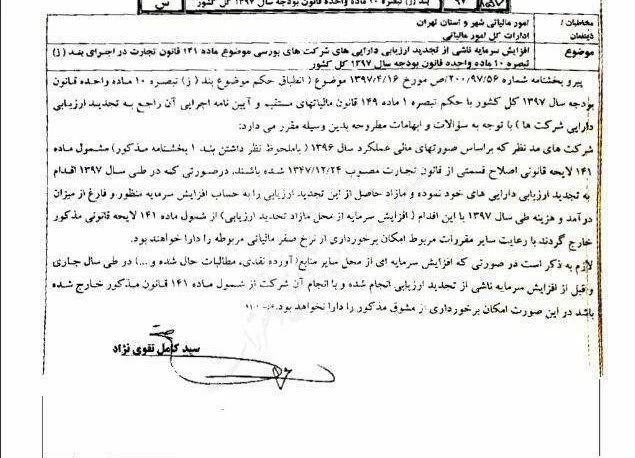 بند (ز) تبصره ۱۰ ماده واحده قانون بودجه سال ۱۳۹۷ کل کشور
۹۷
س
مخاطبان / ذینفعان
امور مالیاتی شهر و استان تهران
ادارات کل امور مالیاتی
موضوع
افزایش سرمایه ناشی از تجدید ارزیابی دارایی های شرکت های بورسی موضوع ماده ۱۴۱ قانون تجارت در اجرای بند (ز)
تبصره ۱۰ ماده واحده قانون بودجه سال ۱۳۹۷ کل کشور
پیرو بخشنامه شماره ۲۰۰/۹۷/۵۶/ص مورخ ۱۳۹۷/۴/۱۶ موضوع ( انطباق حکم موضوع بند ( ز) تبصره ۱۰ ماده واحده قانون
بودجه سال ۱۳۹۷ کل کشور با حکم تبصره ۱ ماده ۱۴۹ قانون مالیاتهای مستقیم و آیین نامه اجرایی آن راجع به تجدید ارزیابی
دارایی شرکت ها ) با توجه به سؤالات و ابهامات مطروحه بدین وسیله مقرر می دارد:
شرکت های مد نظر که براساس صورتهای مالی عملکرد سال ۱۳۹۶ (باملحوظ نظر داشتن بند ۱ بخشنامه مذکور) مشمول ماده
۱۴۱ لایحه قانونی اصلاح قسمتی از قانون تجارت مصوب ۱۳۴۷/۱۲/۲۴ شده باشند. درصورتی که در طی سال ۱۳۹۷ اقدام
به تجدید ارزیابی دارایی های خود نموده و مازاد حاصل از این تجدید ارزیابی را به حساب افزایش سرمایه منظور و فارغ از میزان
درآمد و هزینه طی سال ۱۳۹۷ با این اقدام (افزایش سرمایه از محل مازاد تجدید ارزیابی) از شمول ماده ۱۴۱ لایحه قانونی مذکور
خارج گردند با رعایت سایر مقررات مربوط امکان برخورداری از نرخ صفر مالیاتی مربوطه را دارا خواهند بود.
لازم به ذکر است در صورتی که افزایش سرمایه ای از محل سایر منابع(آورده نقدی، مطالبات حال شده و...) در طی سال جاری
و قبل از افزایش سرمایه ناشی از تجدید ارزیابی انجام شده و با انجام آن شرکت از شمول ماده ۱۴۱ قانون مذکور خارج شده
باشد در این صورت امکان برخورداری از مشوق مذکور را دارا نخواهد بود.
سید کامل تقوی نژاد